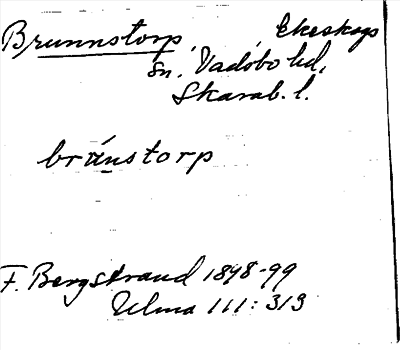 Brunnstorp Ekeskogs
sn. Vadsbo hd,
Skarab. l.
bränstorp
F. Bergstrand 1898-99
Ulma 111:313